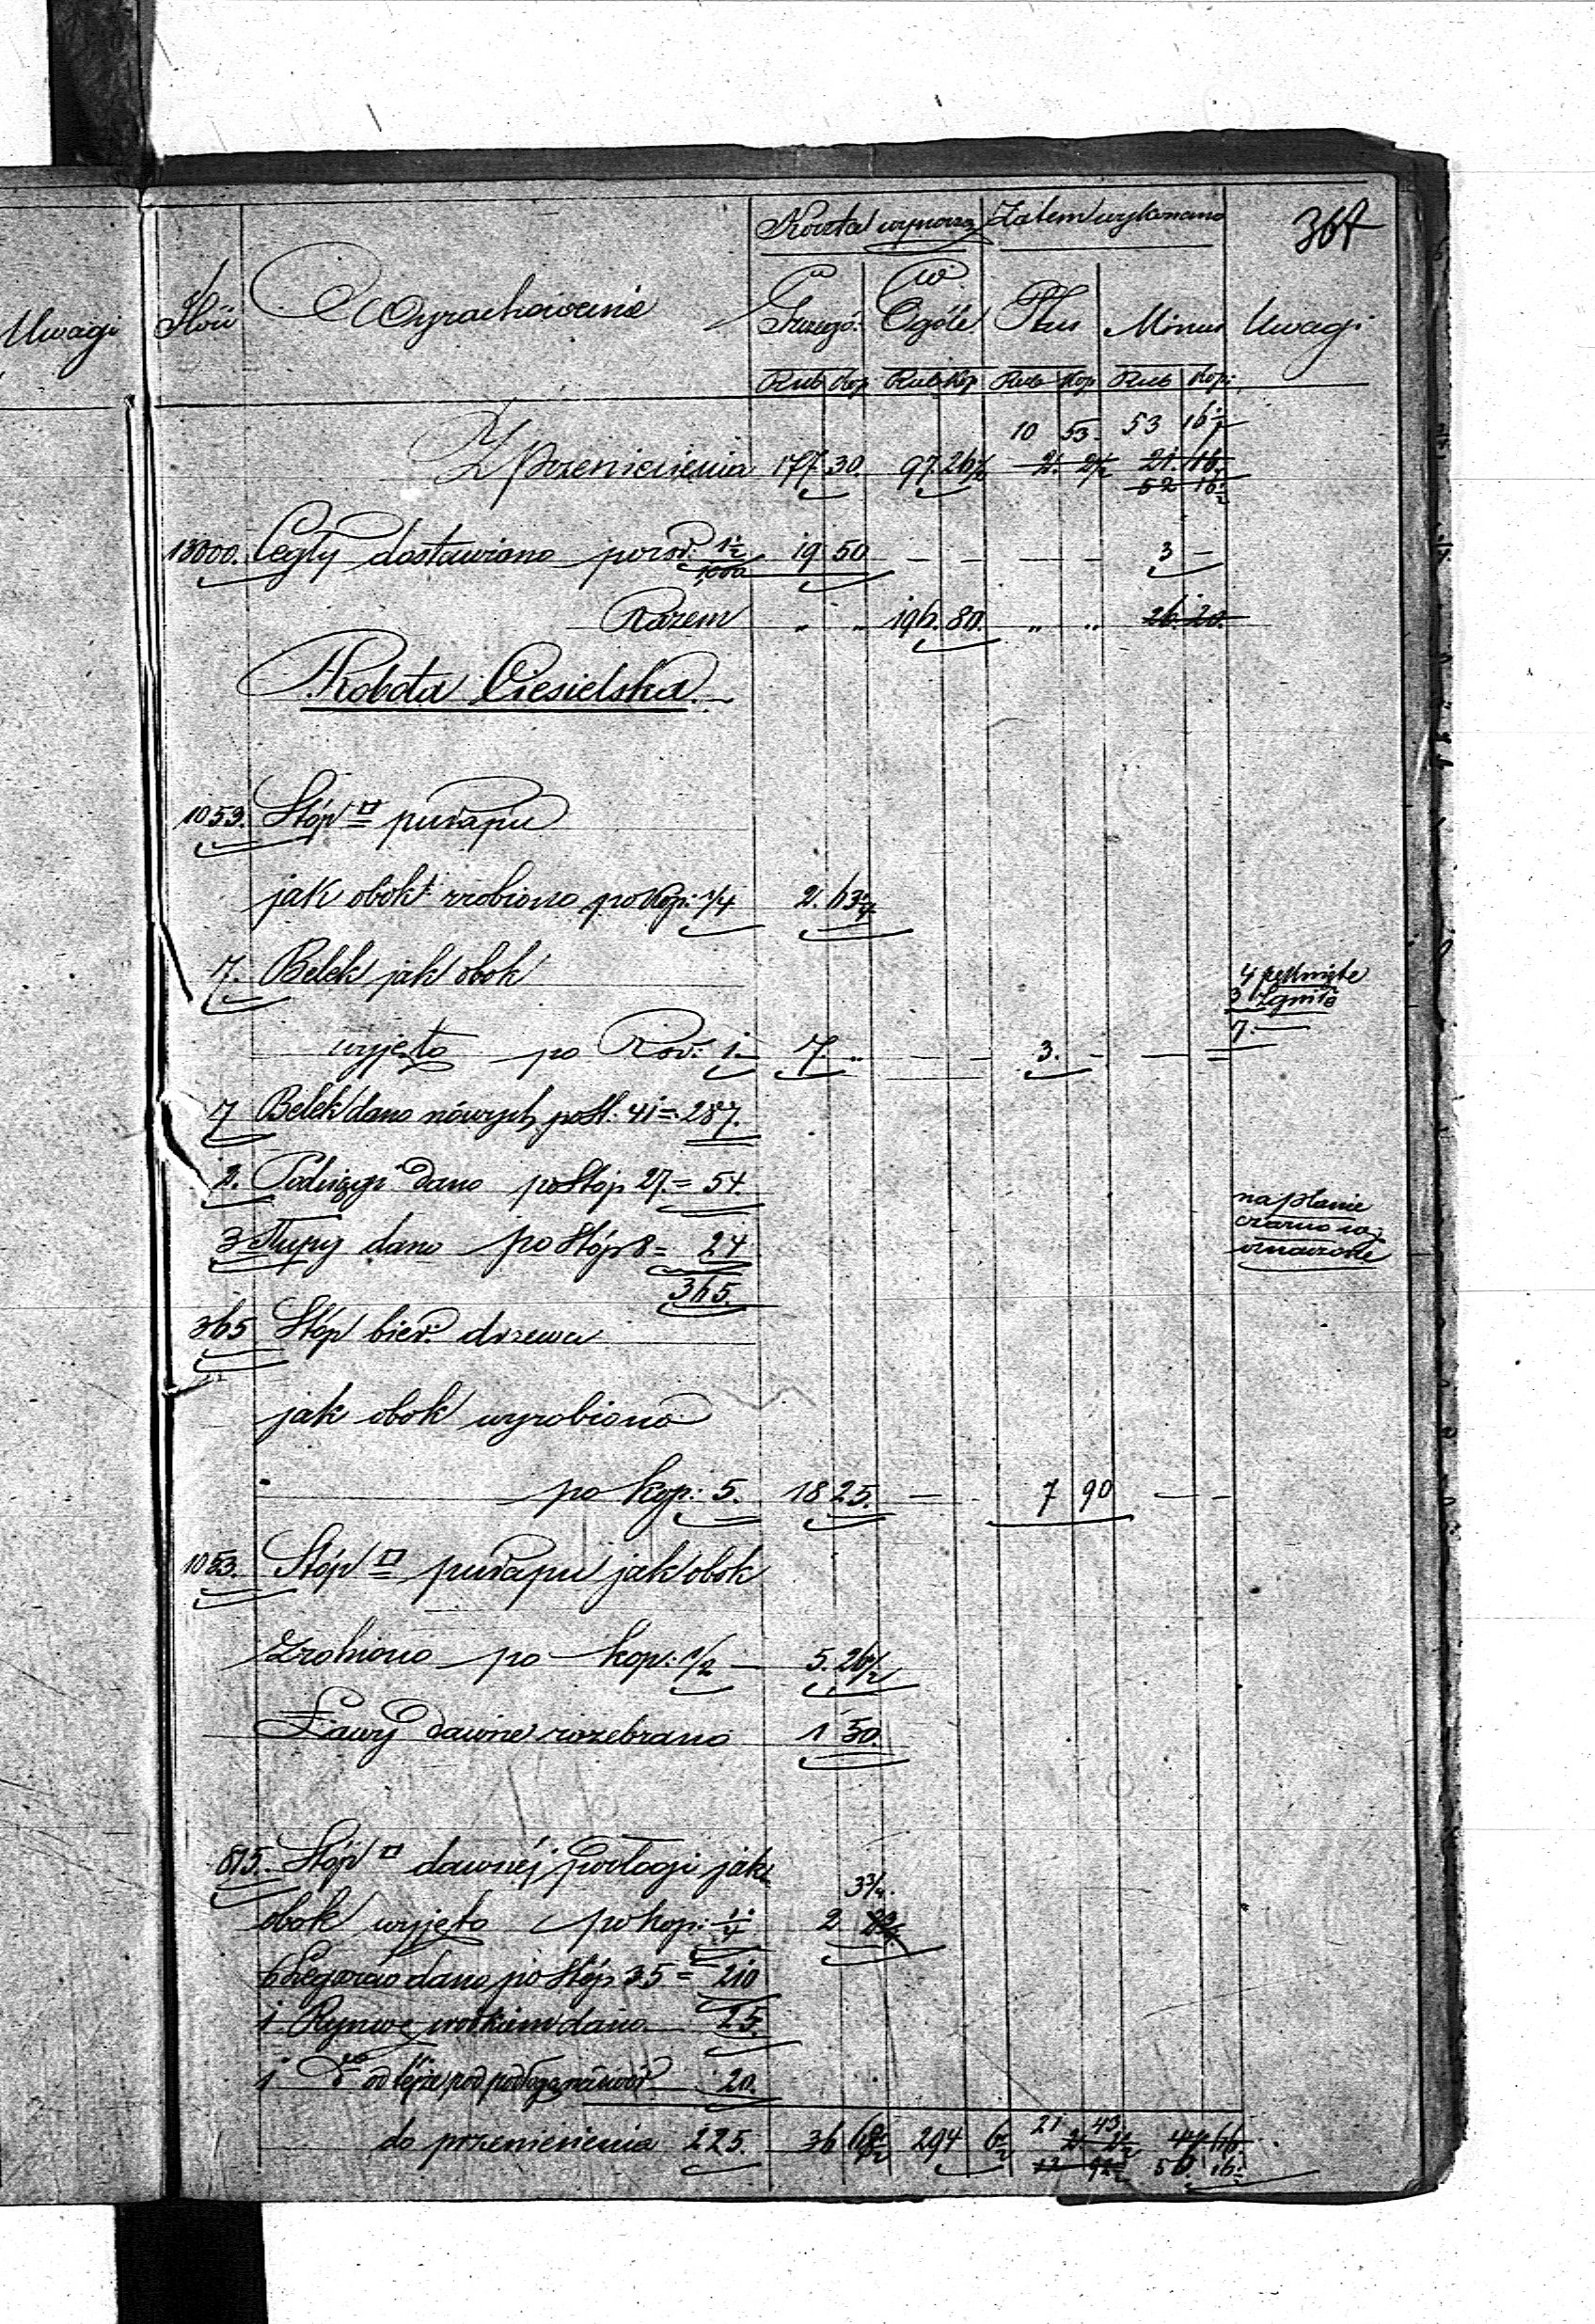 Koszta wynoszą Zatem wykonano
367
Uwagi
Ilość Wyrachowanie w Szczegó: w Ogóle Plus Minus Uwagi
Rub Kop Rub Kop Rub Kop Rub Kop:
10 53. 53 16½
Z przeniesienia 177. 30. 97. 26½ 2. 2½ 21. 16.
52 16½
13000. Cegły dostawiono po rs: 1½/1000 19 50 — — — — 3 —
Razem „ „ 196. 80. „ „ 26. 20.
Robota Ciesielska
1053. Stóp □ pułapu
jak obok zrobiono po kop: ¼ 2. 63¼
7. Belek jak obok
4 pęknięte
3 Zgniłe
7.—
wyjęto po Rs: 1.— 7. „ — — 3. - — —
7 Belek dano nowych po st: 41 = 287.
2. Podciągi dano po Stóp 27. = 54.
na planie
czarno są
oznaczone
3 Słupy dano po Stóp 8 = 24
365.
365 Stóp bież: drzewa
jak obok wyrobiono
po kop: 5. 18 25. — 7 90 — -
1053. Stóp □ pułapu jak obok
zrobiono po kop: ½ — 5. 26½
Ławy dawne rozebrano 1 50.
815. Stóp □ dawnéj podłogi jak
3¾.
obok wyjęto po kop: ¼ 2
6 Legarów dano po Stóp 35 = 210
1 Rynwę dano 25.
1 do 20.
do przeniesienia 225. 36 68½ 294 6½ 21 43. 47 66.
12 92½ 56. 16½